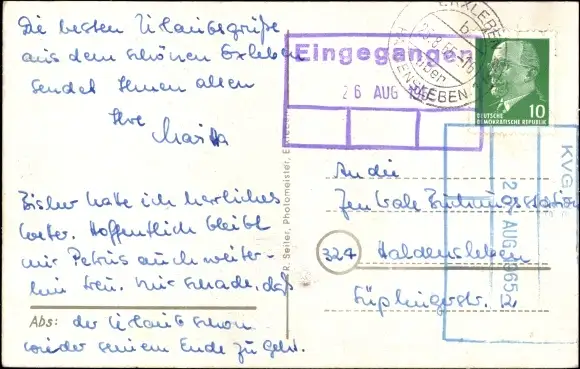 Die besten Urlaubsgrüße
aus dem schönen Erxleben
sendet Ihnen allen
Ihre
Bisher hatte ich herrliches
Wetter. Hoffentlich bleibt
mir Petrus auch weiter-
hin treu. Nur schade, daß
Abs: der Urlaub schon
wieder seinem Ende zu geht.
R. Seiler, Photomeister,
Eingegangen
26 AUG 1965
ERXLEBEN
DEUTSCHE
DEMOKRATISCHE REPUBLIK
10
KVG
AUG. 1965
An die
Zentrale
324 Haldensleben
Süplingerstr. 12